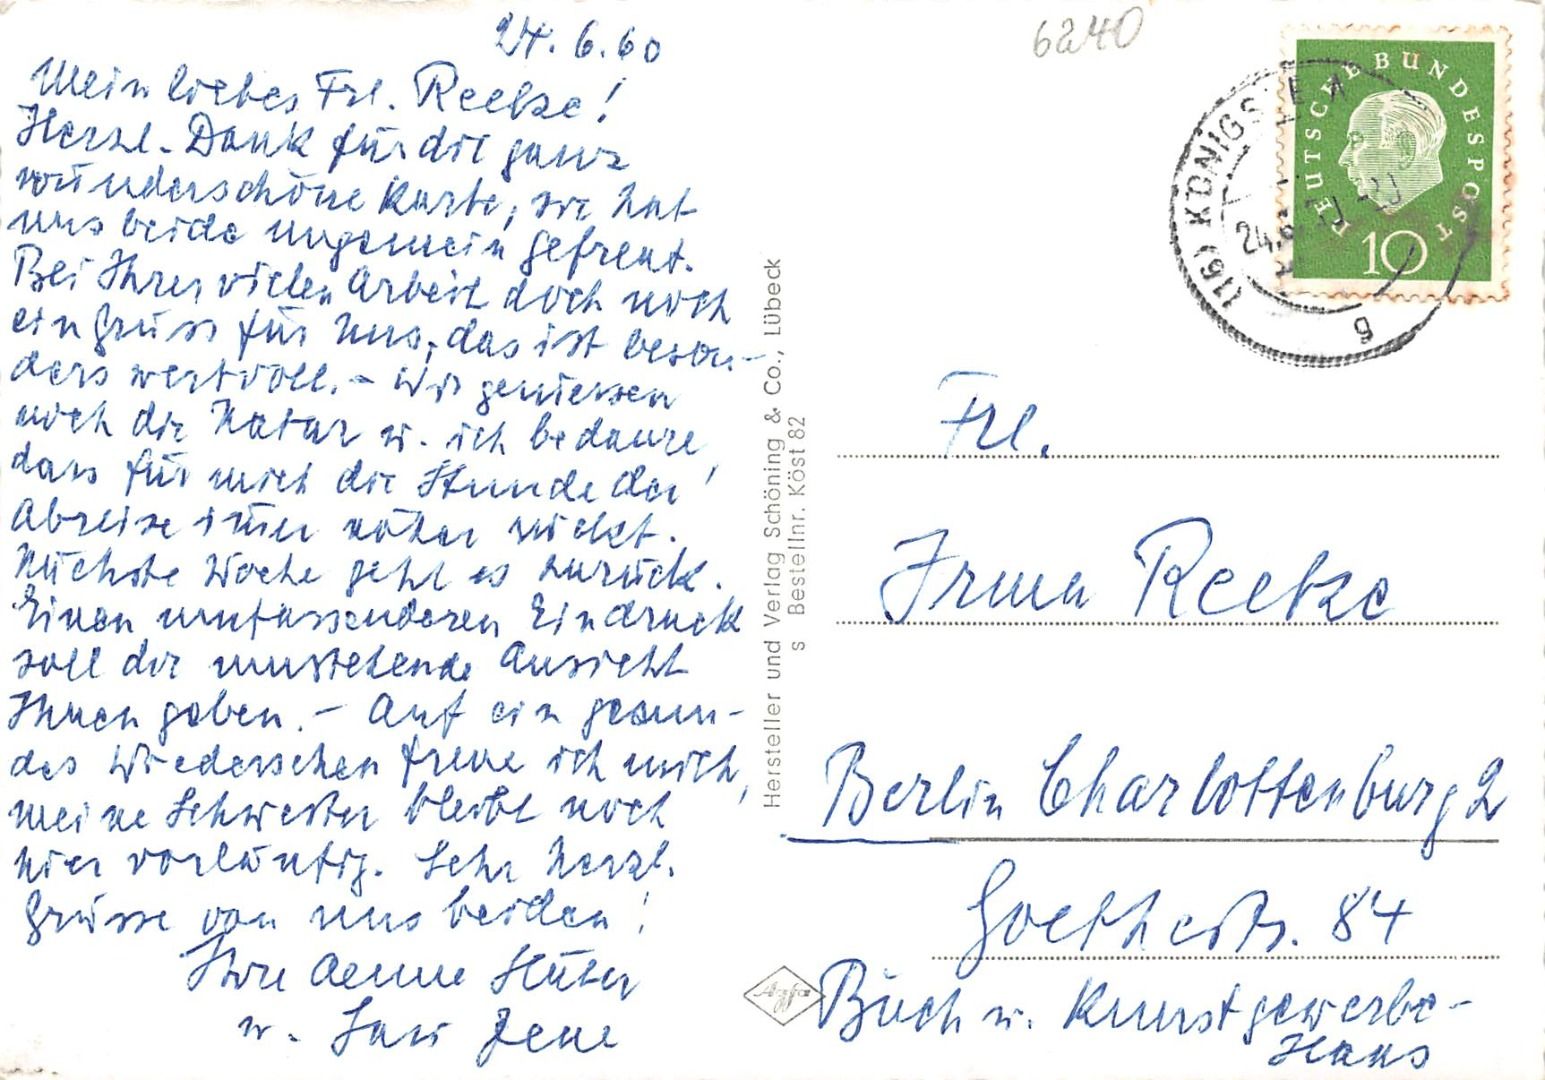 24.6.60
6240
Mein liebes Frl. Reetze!
Herzl. Dank für die ganz
wunderschöne Karte, sie hat
uns beide ungemein gefreut.
Bei Ihrer vielen Arbeit doch noch
ein Gruss für Uns, das ist beson-
ders wertvoll. - Wir geniessen
noch die Natur u. ich bedaure,
dass für mich die Stunde der
Abreise immer näher rückt.
Nächste Woche geht es zurück.
Einen umfassenderen Eindruck
soll die umstehende Ansicht
Ihnen geben. - Auf ein gesun-
des Wiedersehen freue ich mich,
meine Schwester bleibt noch
hier vorläufig. Sehr herzl.
Grüsse von uns beiden!
Ihre Aenne
u.
Hersteller und Verlag Schöning & Co., Lübeck
s Bestellnr. Köst 82
Agfa
DEUTSCHE BUNDESPOST
10
(16) KÖNIGSTEIN
24.6.
g
Frl.
Irma Reetze
Berlin Charlottenburg 2
Goethestr. 84
Buch u. Kunstgewerbe-
Haus